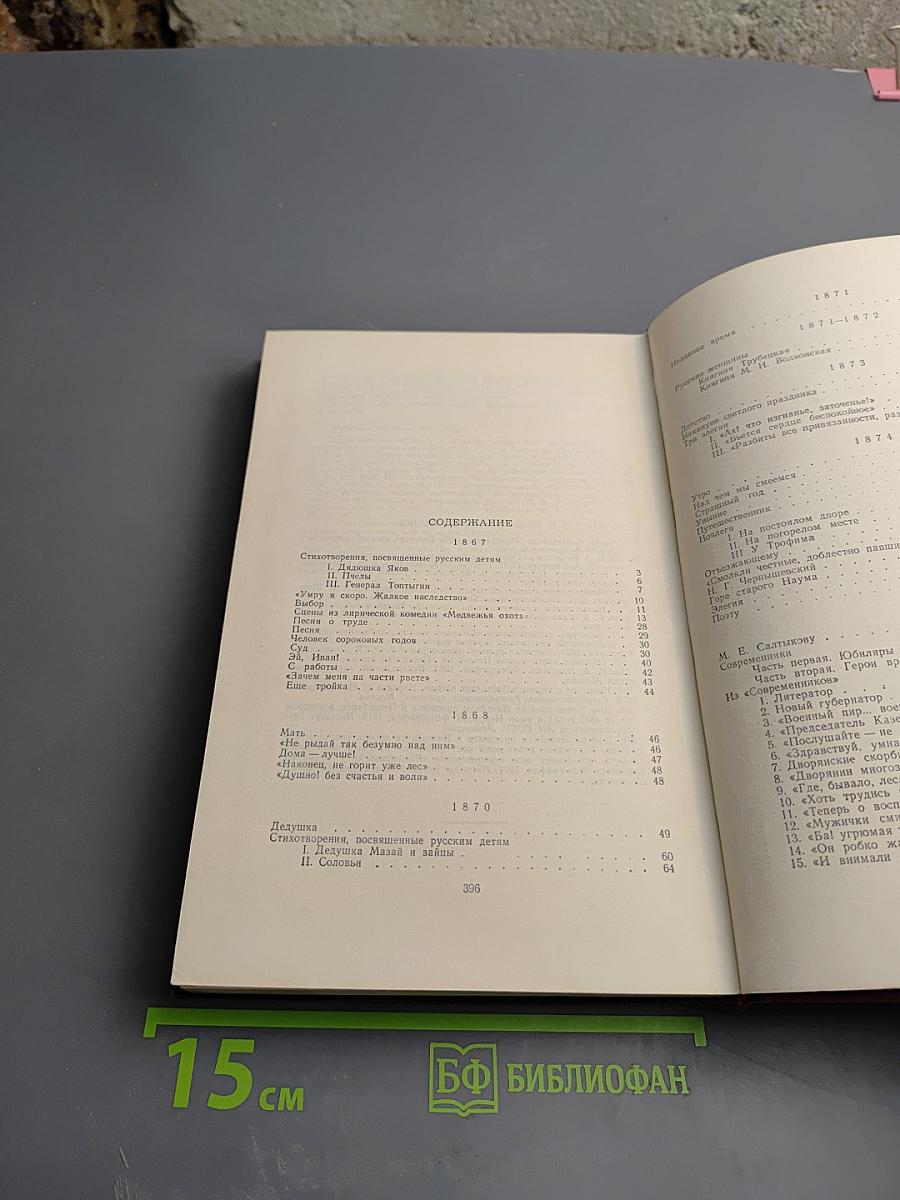 СОДЕРЖАНИЕ
1867
Стихотворения, посвященные русским детям
I. Дядюшка Яков . . . 3
II. Пчелы . . . 6
III. Генерал Топтыгин . . . 7
«Умру я скоро. Жалкое наследство» . . . 10
Выбор . . . 11
Сцены из лирической комедии «Медвежья охота» . . . 13
Песня о труде . . . 28
Песня . . . 29
Человек сороковых годов . . . 30
Суд . . . 30
Эй, Иван! . . . 40
С работы . . . 42
«Зачем меня на части рвете» . . . 43
Еще тройка . . . 44
1868
Мать . . . 46
«Не рыдай так безумно над ним» . . . 46
Дома — лучше! . . . 47
«Наконец, не горит уже лес» . . . 48
«Душно! без счастья и воли» . . . 48
1870
Дедушка . . . 49
Стихотворения, посвященные русским детям
I. Дедушка Мазай и зайцы . . . 60
II. Соловьи . . . 64
396
1871
Недавнее время
1871—1872
Русские женщины
Княгиня Трубецкая
Княгиня М. Н. Волконская
1873
Детство
Накануне светлого праздника
Три элегии
I. «Ах! что изгнанье, заточенье!»
II. «Бьется сердце беспокойное»
III. «Разбиты все привязанности, раз
1874
Утро
Над чем мы смеемся
Страшный год
Уныние
Путешественник
Ночлеги
I. На постоялом дворе
II. На погорелом месте
III У Трофима
Отъезжающему
«Смолкли честные, доблестно павши
Н. Г. Чернышевский
Горе старого Наума
Элегия
Поэту
М. Е. Салтыкову
Современники
Часть первая. Юбиляры
Часть вторая. Герои вр
Из «Современников»
1. Литератор
2. Новый губернатор
3. «Военный пир... вое
4. «Председатель Казе
5. «Послушайте — не
6. «Здравствуй, умна
7. Дворянские скорб
8. «Дворянин многоз
9. «Где, бывало, лес
10. «Хоть трудись
11. «Теперь о восп
12. «Мужички сми
13. «Ба! угрюмая
14. «Он робко жа
15. «И внимали
15 см
БФ БИБЛИОФАН